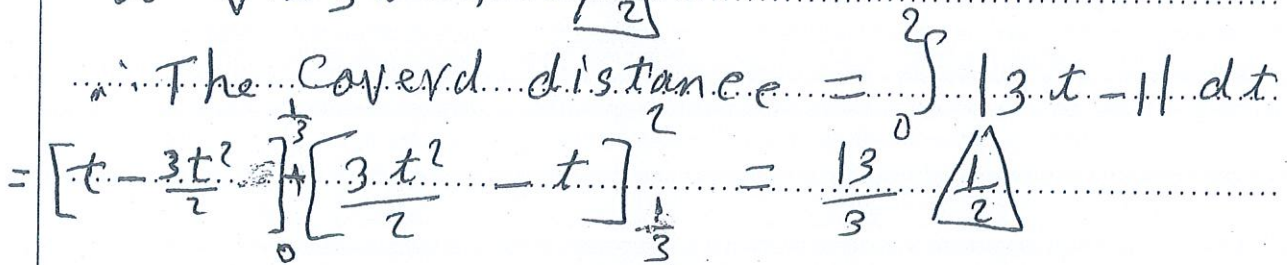 2
∴ The Coverd distance = ∫₀² |3t - 1| dt
= [t - 3t²/2]₀^{1/3} + [3t²/2 - t]_{1/3}^{2} = 13/3 1/2